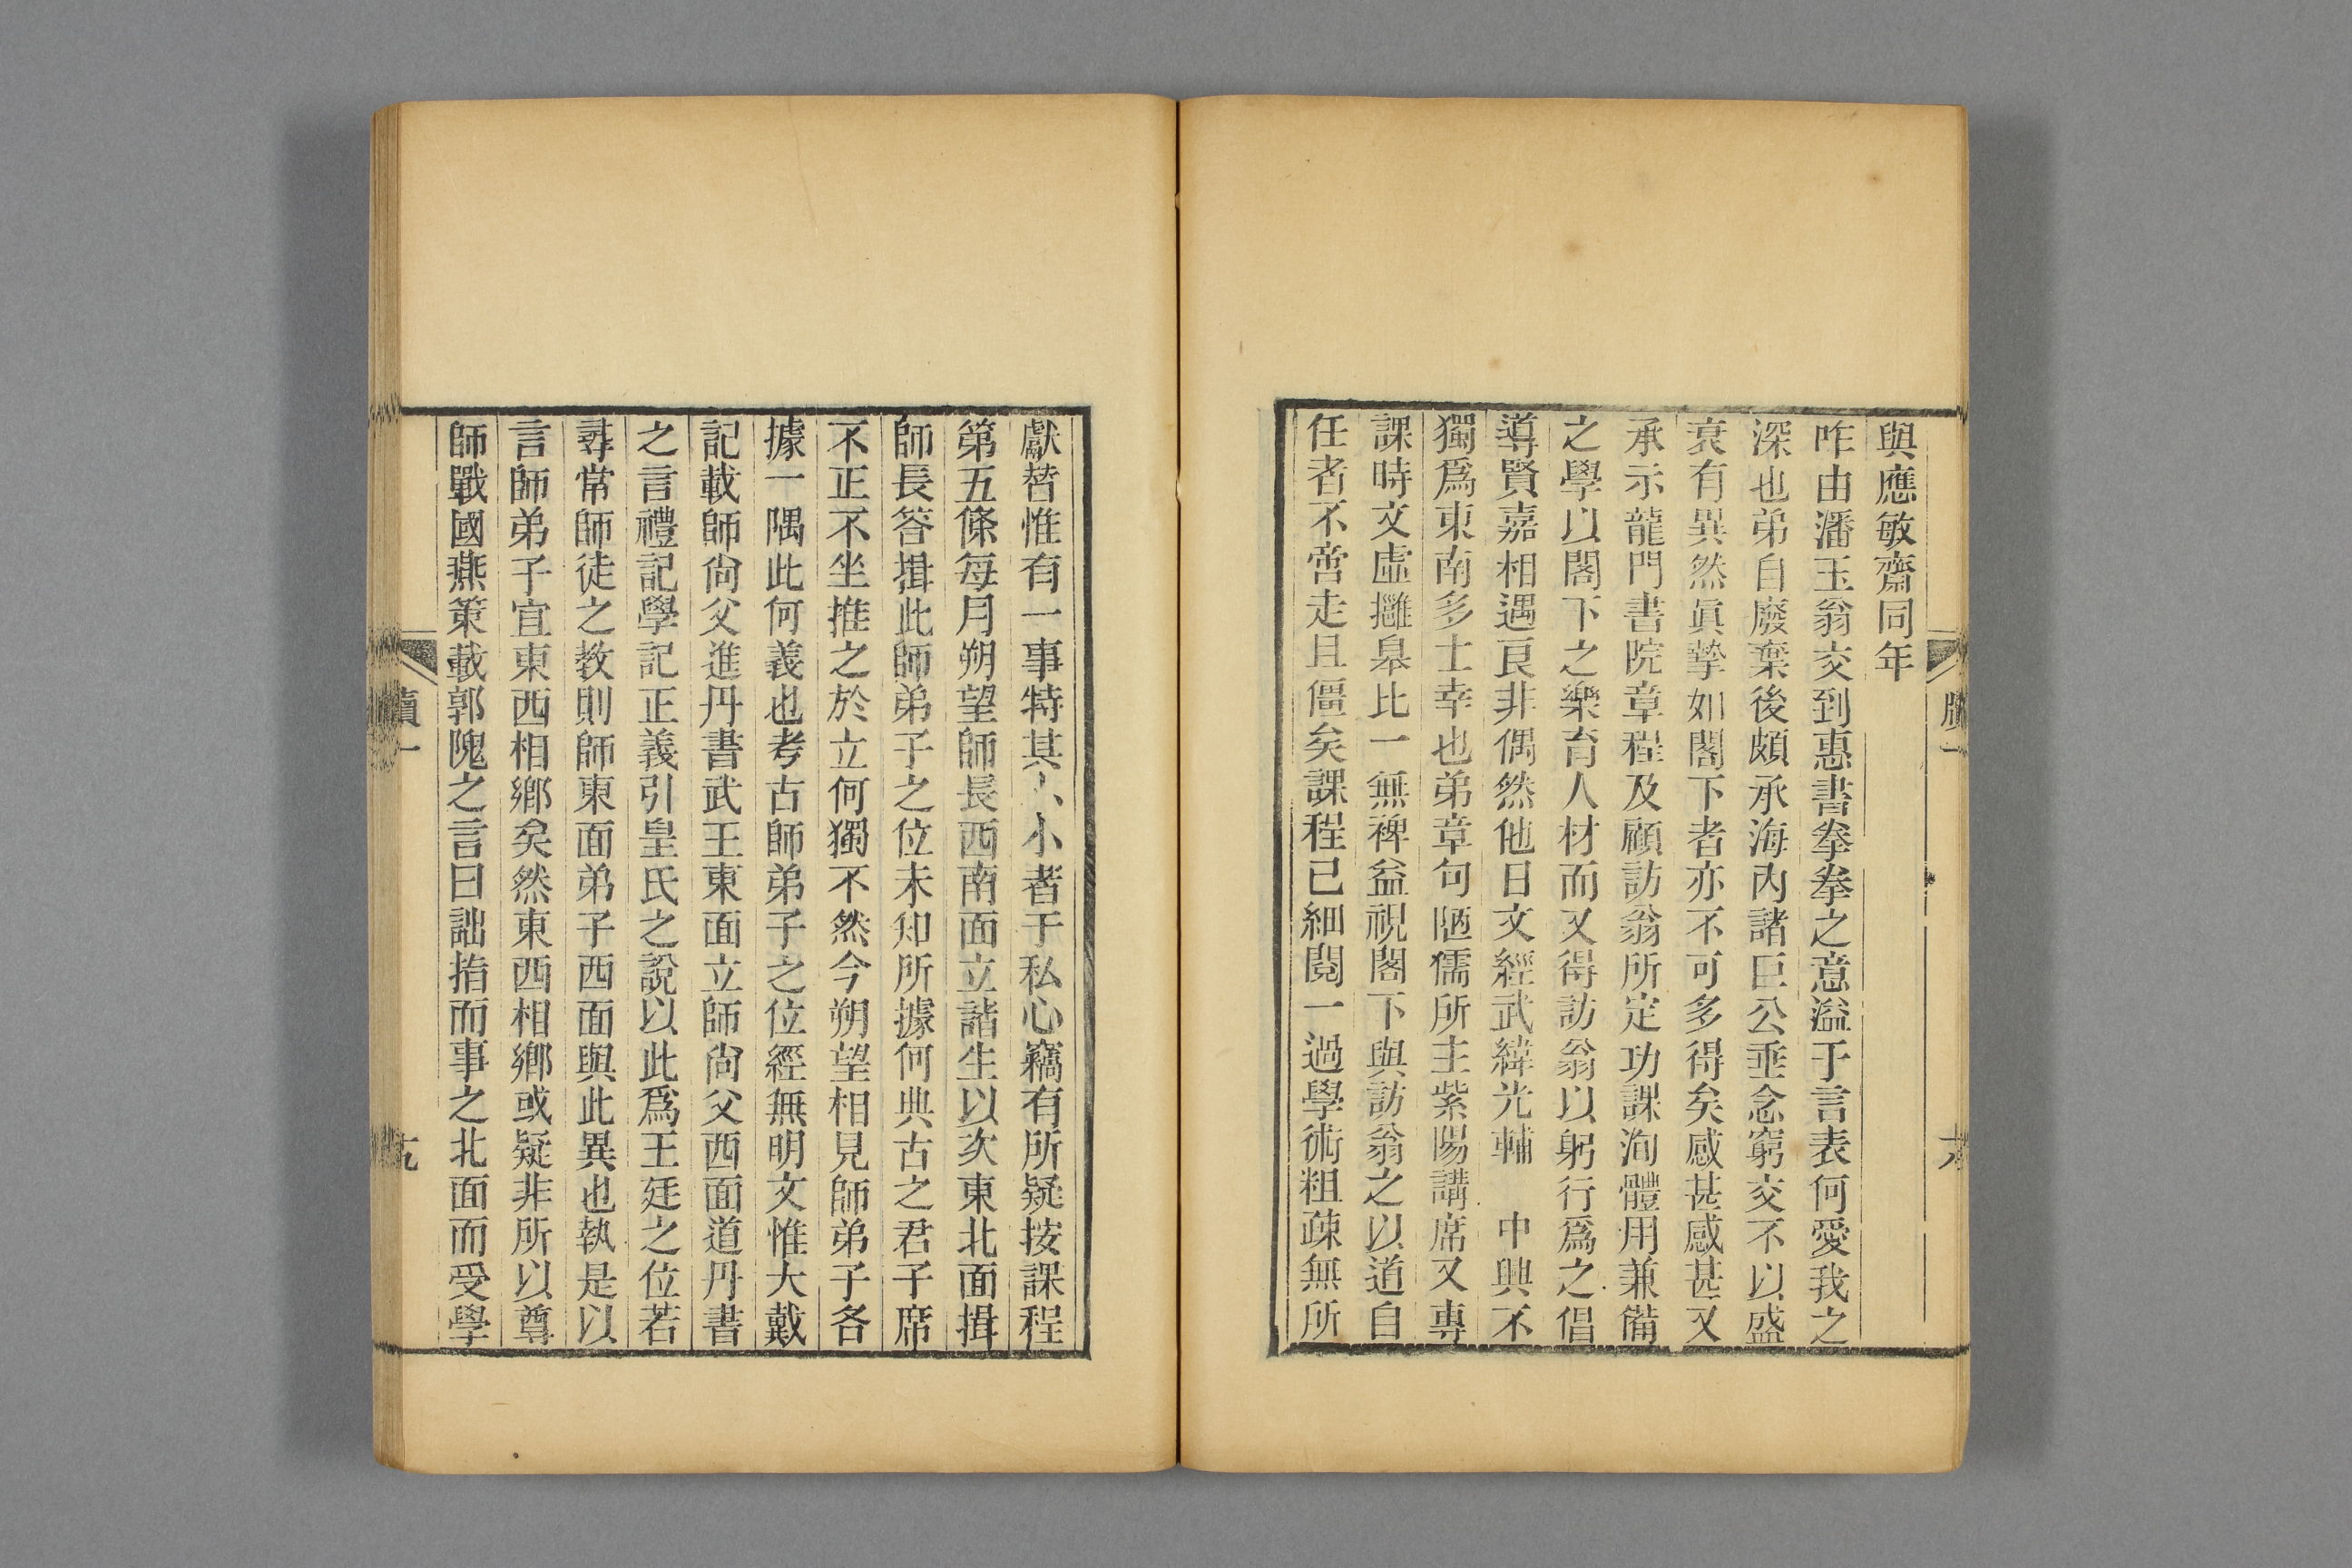 與應敏齋同年
咋由潘玉翁交到惠書拳拳之意溢于言表何愛我之
深也弟自廢棄後頗承海內諸巨公垂念窮交不以盛
衰有異然眞摯如閣下者亦不可多得矣感甚感甚又
承示龍門書院章程及顧訪翁所定功課洵體用兼備
之學以閣下之樂育人材而又得訪翁以躬行爲之倡
導賢嘉相遇良非偶然他日文經武緯光輔 中興不
獨爲東南多士幸也弟章句陋儒所主紫陽講席又專
課時文虛擁皋比一無裨益視閣下與訪翁之以道自
任者不啻走且僵矣課程已細閱一過學術粗疎無所
獻替惟有一事特其小小者于私心竊有所疑按課程
第五條每月朔望師長西南面立諸生以次東北面揖
師長答揖此師弟子之位未知所據何典古之君子席
不正不坐推之於立何獨不然今朔望相見師弟子各
據一隅此何義也考古師弟子之位經無明文惟大戴
記載師尙父進丹書武王東面立師尙父西面道丹書
之言禮記學記正義引皇氏之說以此爲王廷之位若
尋常師徒之教則師東面弟子西面與此異也執是以
言師弟子宜東西相鄉矣然東西相鄉或疑非所以尊
師戰國燕策載郭隗之言曰詘指而事之北面而受學
牘一